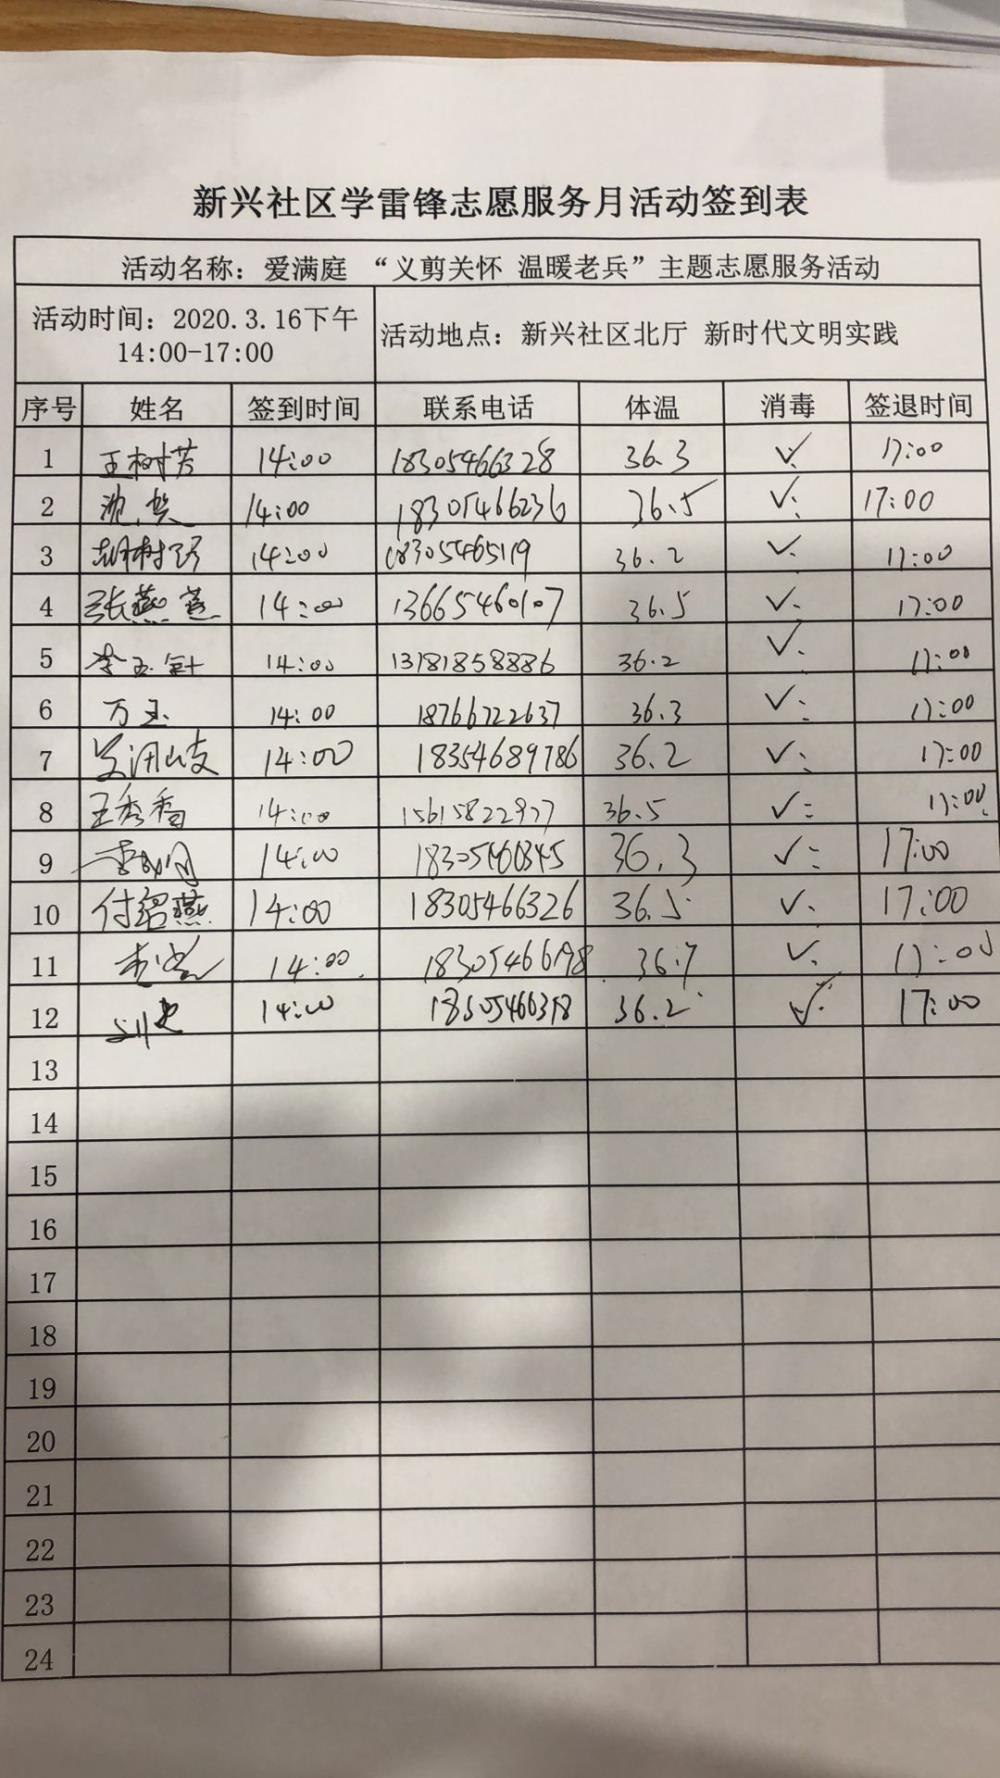 新兴社区学雷锋志愿服务月活动签到表
活动名称：爱满庭 “义剪关怀 温暖老兵”主题志愿服务活动
活动时间：2020.3.16下午
14:00-17:00
活动地点：新兴社区北厅 新时代文明实践
序号 姓名 签到时间 联系电话 体温 消毒 签退时间
1 王树芳 14:00 18305466328 36.3 ✓ 17:00
2 14:00 18305466236 36.5 ✓ 17:00
3 14:00 18305465119 36.2 ✓ 17:00
4 张燕 14:00 13665460107 36.5 ✓ 17:00
5 李玉针 14:00 13181858886 36.2 ✓ 17:00
6 万玉 14:00 18766722637 36.3 ✓ 17:00
7 14:00 18354689786 36.2 ✓ 17:00
8 王秀香 14:00 15615822937 36.5 ✓ 17:00
9 14:00 36.3 ✓ 17:00
10 付绍燕 14:00 18305466326 36.5 ✓ 17:00
11 14:00 18305466198 36.7 ✓ 17:00
12 14:00 18305466318 36.2 ✓ 17:00
13
14
15
16
17
18
19
20
21
22
23
24